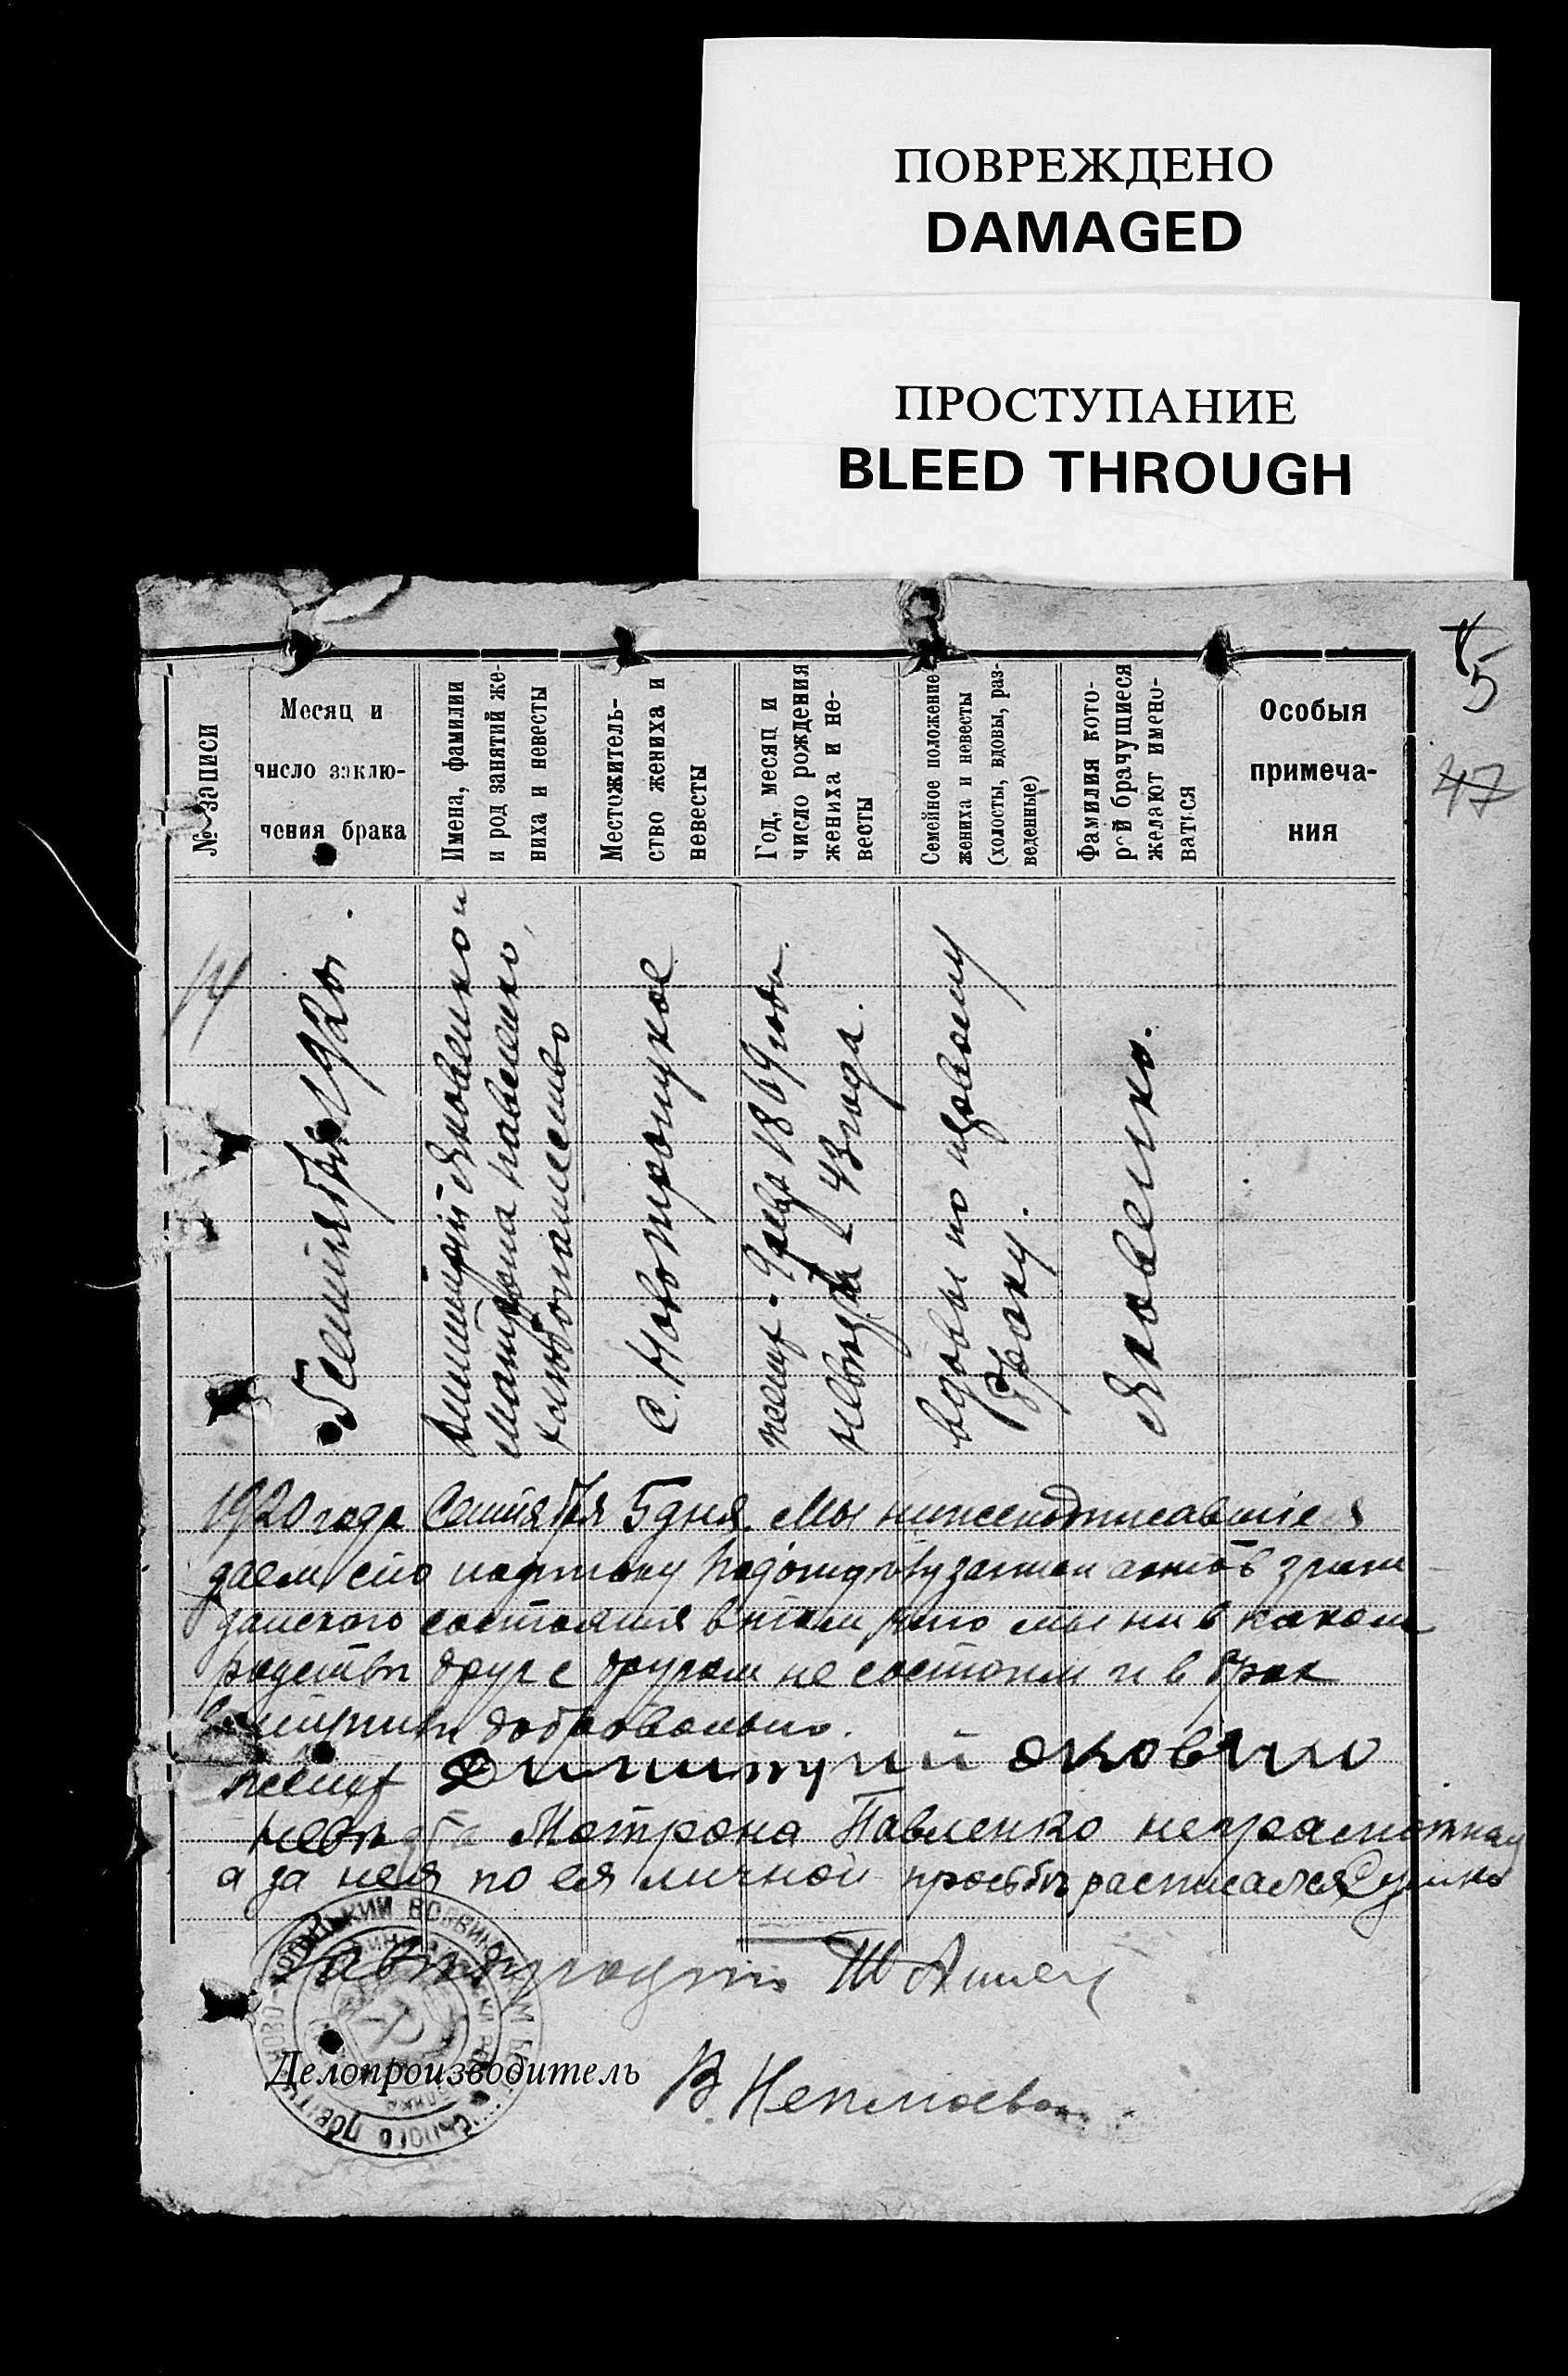 ПОВРЕЖДЕНО
DAMAGED
ПРОСТУПАНИЕ
BLEED THROUGH
5
47
№ записи
Месяц и
число заклю-
чения брака
Имена, фамилии
и род занятий же-
ниха и невесты
Местожитель-
ство жениха и
невесты
Год, месяц и
число рождения
жениха и не-
весты
Семейное положение
жениха и невесты
(холосты, вдовы, раз-
веденные)
Фамилия кото-
рой брачущиеся
желают имено-
ваться
Особыя
примеча-
ния
14
5 сентября 1920 г.
Димитрий Яковенко и
Матрона Павленко,
хлебопашество
с. Новотроицкое
жених - 1869 года.
невеста - 43 года.
вдовы по первому
браку.
Яковенко.
1920 года Сентября 5 дня. Мы нижеподписавшиеся
даем сию подписку Подотделу записи актов граж-
данского состояния в том, что мы ни в каком
родстве друг с другом не состоим и в брак
вступили добровольно.
жених Димитрий Яковенко
невеста Матрона Павленко неграмотная
а за нея по ея личной просьбе расписался
Зав. подотдела
Делопроизводитель В.